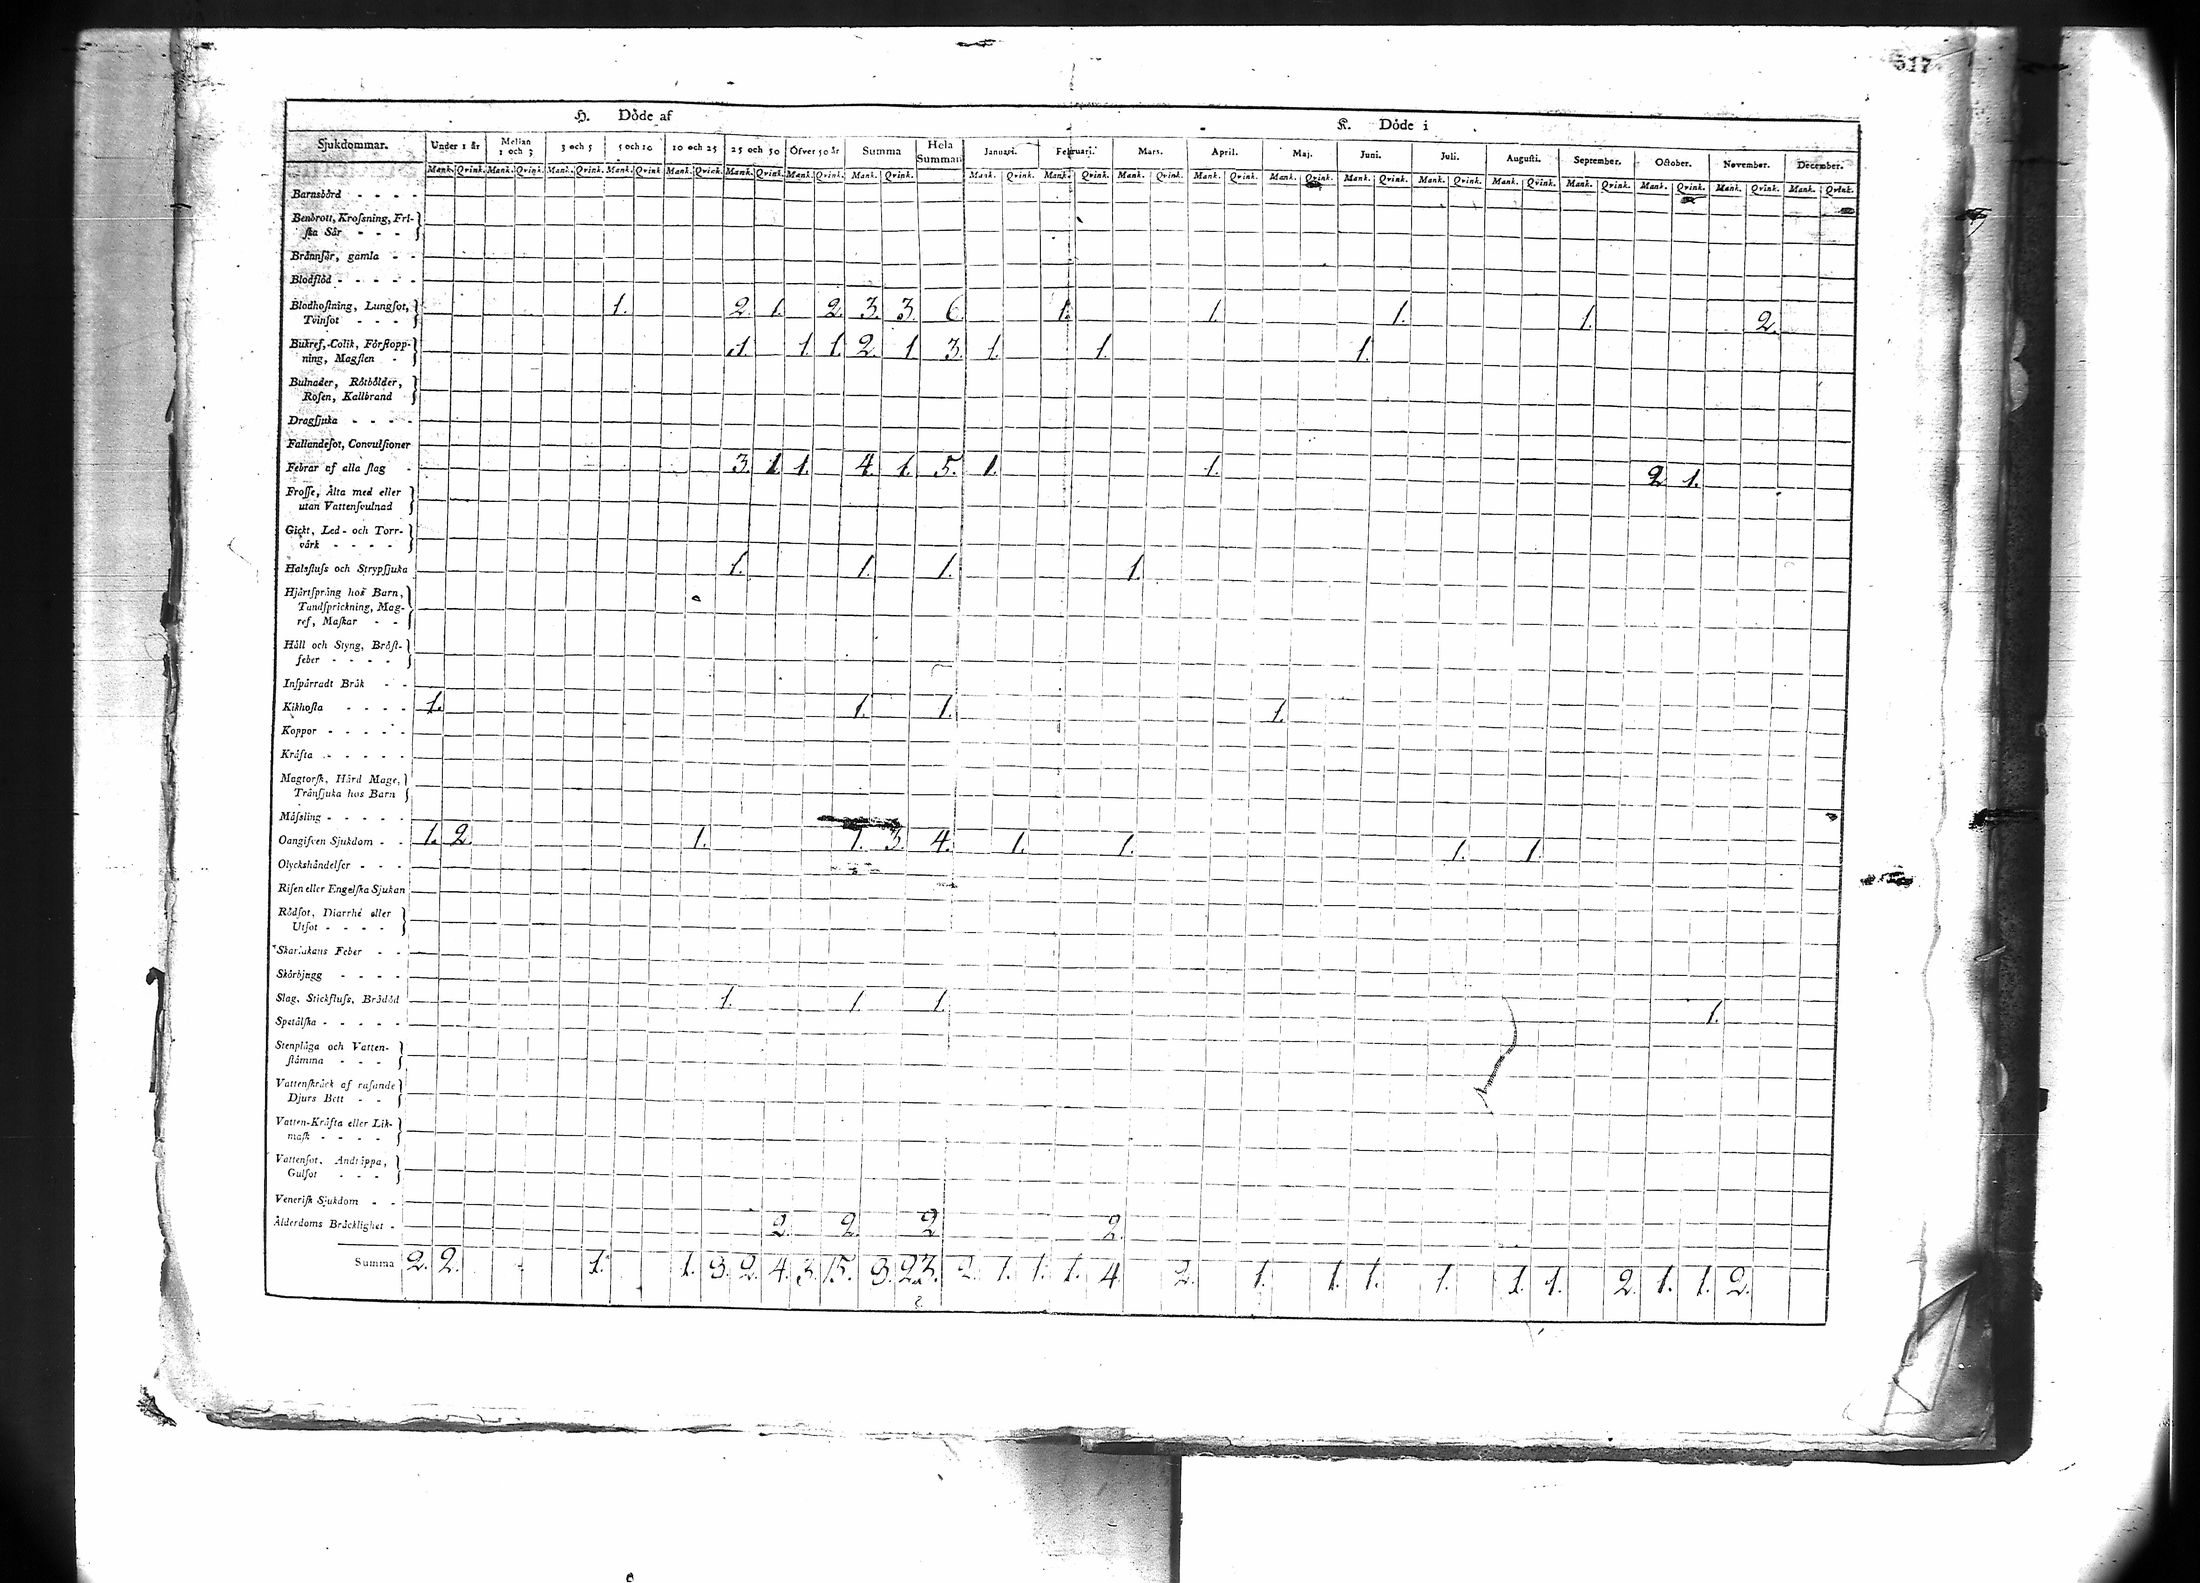 517
H. Döde af
K. Döde i
Sjukdommar. Under 1 år Mellan 1 och 3 3 och 5 5 och 10 10 och 25 25 och 50 Öfver 50 år Summa Hela Summan Januari. Februari. Mars. April. Maj. Juni. Juli. Augusti. September. October. November. December.
Mank. Qvink. Mank. Qvink. Mank. Qvink. Mank. Qvink. Mank. Qvink. Mank. Qvink. Mank. Qvink. Mank. Qvink. Mank. Qvink. Mank. Qvink. Mank. Qvink. Mank. Qvink. Mank. Qvink. Mank. Qvink. Mank. Qvink. Mank. Qvink. Mank. Qvink. Mank. Qvink. Mank. Qvink. Mank. Qvink.
Barnsbörd - - - -
Benbrott, Krofsning, Fri-
ska Sår - - -
Brännsår, gamla - -
Blodflöd - - - - -
Blodhostning, Lungsot,
Tvinsot - - - 1. 2. 1. 2. 3. 3. 6. 1. 1. 1. 1. 2.
Bukref, Colik, Förstopp-
ning, Magsten - 1. 1. 1. 2. 1. 3. 1. 1. 1.
Bulnader, Rötbölder,
Rosen, Kallbrand
Dragsjuka - - - -
Fallandesot, Convulsioner
Febrar af alla slag - 3. 1. 1. 4. 1. 5. 1. 1. 2. 1.
Frosse, Älta med eller
utan Vattensvulnad
Gickt, Led- och Torr-
värk - - - -
Halsfluss och Strypsjuka 1. 1. 1. 1.
Hjärtsprång hos Barn,
Tandsprickning, Mag-
ref, Maskar - -
Håll och Styng, Bröst-
feber - - - -
Inspärradt Bråk - -
Kikhosta - - - - 1. 1. 1. 1.
Koppor - - - - -
Kräfta - - - - -
Magtorsk, Hård Mage,
Tränsjuka hos Barn
Mässling - - - - -
Oangifven Sjukdom - - 1. 2. 1. 1. 3. 4. 1. 1. 1. 1.
Olyckshändelser - - -
Risen eller Engelska Sjukan
Rödsot, Diarrhé eller
Utsot - - - -
Skarlakans Feber - -
Skörbjugg - - - -
Slag, Stickfluss, Brådöd 1. 1. 1. 1.
Spetälska - - - - -
Stenplåga och Vatten-
stämma - - -
Vattenskräck af rasande
Djurs Bett - -
Vatten-Kräfta eller Lik-
mask - - - -
Vattensot, Andtäppa,
Gulsot - - -
Venerisk Sjukdom - -
Ålderdoms Bräcklighet - 2. 2. 2 2.
Summa 2. 2. 1. 1. 9. 2. 4. 3. 15. 9. 23. 2. 1. 1. 1. 4. 2. 1. 1. 1. 1. 1. 1. 2. 1. 1. 2.